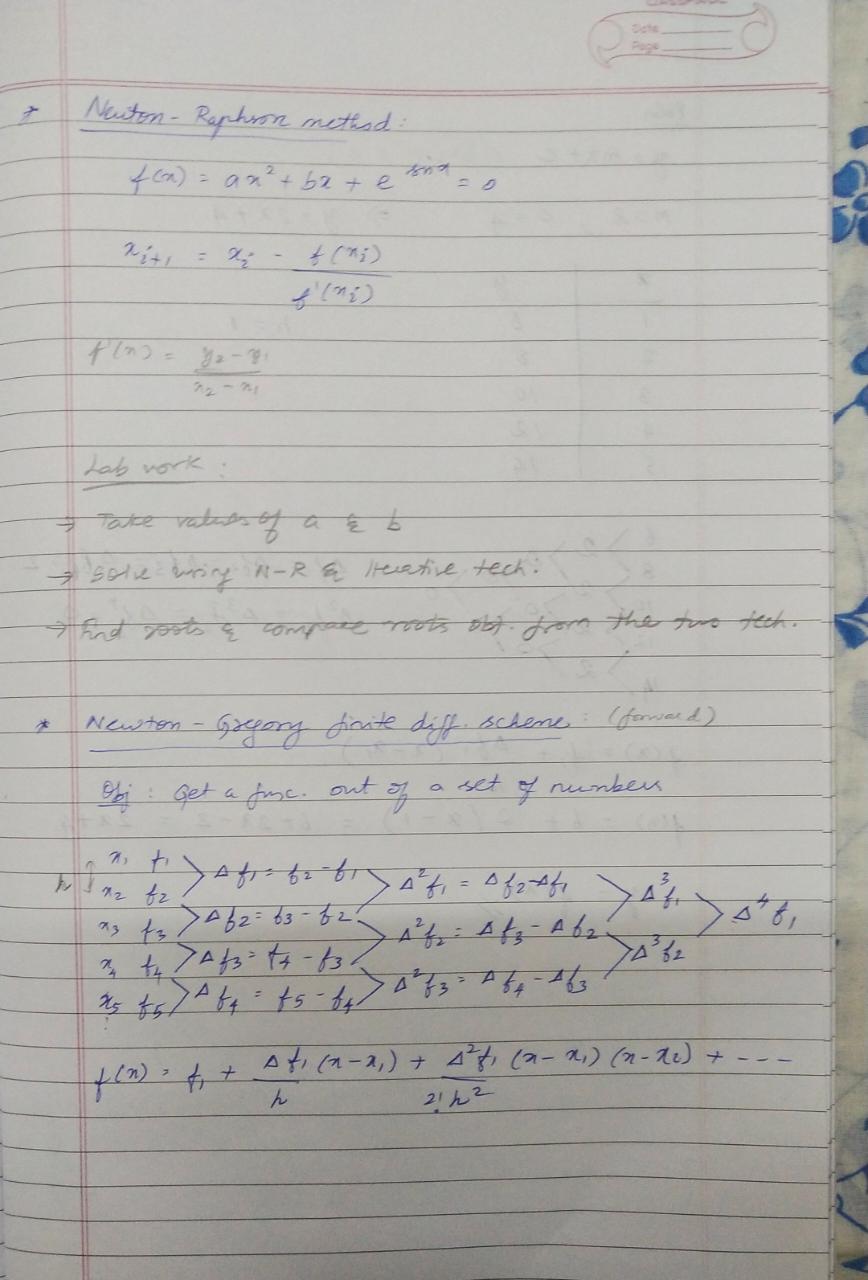 Date
Page
* Newton - Raphson method:
f(x) = ax² + bx + e^sinx = 0
x_{i+1} = x_i - f(x_i) / f'(x_i)
f'(x) = (y₂ - y₁) / (x₂ - x₁)
Lab work:
→ Take values of a & b
→ Solve using N-R & Iterative tech.
→ Find roots & compare roots obt. from the two tech.
* Newton - Gregory finite diff. scheme: (forward)
Obj: Get a func. out of a set of numbers
h ↕ x₁ f₁ > Δf₁ = f₂ - f₁ > Δ²f₁ = Δf₂ - Δf₁ > Δ³f₁ > Δ⁴f₁
x₂ f₂
x₃ f₃ > Δf₂ = f₃ - f₂ > Δ²f₂ = Δf₃ - Δf₂ > Δ³f₂
x₄ f₄ > Δf₃ = f₄ - f₃ > Δ²f₃ = Δf₄ - Δf₃
x₅ f₅ > Δf₄ = f₅ - f₄
⋮
f(x) = f₁ + Δf₁/h (x - x₁) + Δ²f₁/2!h² (x - x₁) (x - x₂) + ---